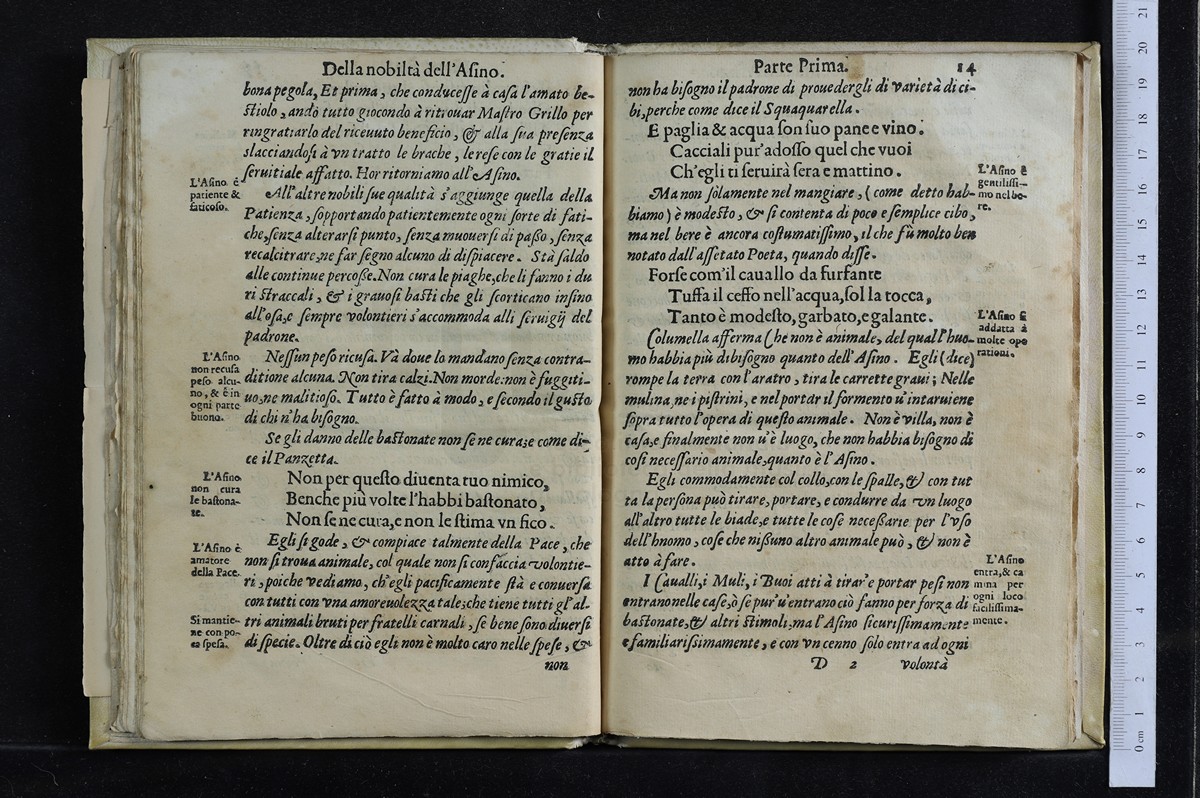 Della nobiltà dell'Aſino.
bona pegola, Et prima, che conduceſſe à caſa l'amato be-
ſtiolo, andò tutto giocondo à ritrouar Maſtro Grillo per
ringratiarlo del riceuuto beneficio, & alla ſua preſenza
slacciandoſi à vn tratto le brache, le reſe con le gratie il
ſeruitiale affatto. Hor ritorniamo all'Aſino.
L'Aſino è
patiente &
faticoſo.
All'altre nobili ſue qualità s'aggiunge quella della
Patienza, ſopportando patientemente ogni ſorte di fati-
che, ſenza alterarſi punto, ſenza muouerſi di paſſo, ſenza
recalcitrare, ne far ſegno alcuno di diſpiacere. Stà ſaldo
alle continue percoſſe. Non cura le piaghe, che li fanno i du
ri ſtraccali, & i grauoſi baſti che gli ſcorticano inſino
all'oſſa, e ſempre volontieri s'accommoda alli ſeruigij del
padrone.
L'Aſino
non recuſa
peſo alcu-
no, & è in
ogni parte
buono.
Neſſun peſo ricuſa. Và doue lo mandano ſenza contra-
ditione alcuna. Non tira calzi. Non morde: non è fuggiti-
uo, ne malitioſo. Tutto è fatto à modo, e ſecondo il guſto
di chi n'ha biſogno.
Se gli danno delle baſtonate non ſe ne cura, e come di-
ce il Panzetta.
L'Aſino
non cura
le baſtona-
te.
Non per queſto diuenta tuo nimico,
Benche più volte l'habbi baſtonato,
Non ſe ne cura, e non le ſtima vn fico.
L'Aſino è
amatore
della Pace.
Egli ſi gode, & compiace talmente della Pace, che
non ſi troua animale, col quale non ſi confaccia volontie-
ri, poiche vediamo, ch'egli pacificamente ſtà e conuerſa
con tutti con vna amoreuolezza tale, che tiene tutti gl'al-
Si mantie-
ne con po-
ca ſpeſa.
tri animali bruti per fratelli carnali, ſe bene ſono diuerſi
di ſpecie. Oltre di ciò egli non è molto caro nelle ſpeſe, &
non
Parte Prima. 14
non ha biſogno il padrone di prouedergli di varietà di ci-
bi, perche come dice il Squaquarella.
E paglia & acqua ſon ſuo pane e vino.
Cacciali pur'adoſſo quel che vuoi
Ch'egli ti ſeruirà ſera e mattino.
L'Aſino è
gentiliſſi-
mo nel be-
re.
Ma non ſolamente nel mangiare, (come detto hab-
biamo) è modeſto, & ſi contenta di poco e ſemplice cibo,
ma nel bere è ancora coſtumatiſſimo, il che fù molto ben
notato dall'aſſetato Poeta, quando diſſe.
Forſe com'il cauallo da furfante
Tuffa il ceffo nell'acqua, ſol la tocca,
Tanto è modeſto, garbato, e galante.
L'Aſino ſi
addatta à
molte ope
rationi.
Columella afferma Che non è animale, del quall'huo-
mo habbia più di biſogno quanto dell'Aſino. Egli (dice)
rompe la terra con l'aratro, tira le carrette graui; Nelle
mulina, ne i piſtrini, e nel portar il formento u'interuiene
ſopra tutto l'opera di queſto animale. Non è villa, non è
caſa, e finalmente non u'è luogo, che non habbia biſogno di
coſi neceſſario animale, quanto è l'Aſino.
Egli commodamente col collo, con le ſpalle, & con tut
ta la perſona può tirare, portare, e condurre da vn luogo
all'altro tutte le biade, e tutte le coſe neceſſarie per l'vſo
dell'hnomo, coſe che niſſuno altro animale può, & non è
atto à fare.
L'Aſino
entra, & ca
mina per
ogni loco
faciliſſima-
mente.
I Caualli, i Muli, i Buoi atti à tirar'e portar peſi non
entrano nelle caſe, ò ſe pur'u'entrano ciò fanno per forza di
baſtonate, & altri ſtimoli, ma l'Aſino ſicuriſſimamente
e familiariſſimamente, e con vn cenno ſolo entra ad ogni
D 2 volontà
0 cm 1 2 3 4 5 6 7 8 9 10 11 12 13 14 15 16 17 18 19 20 21